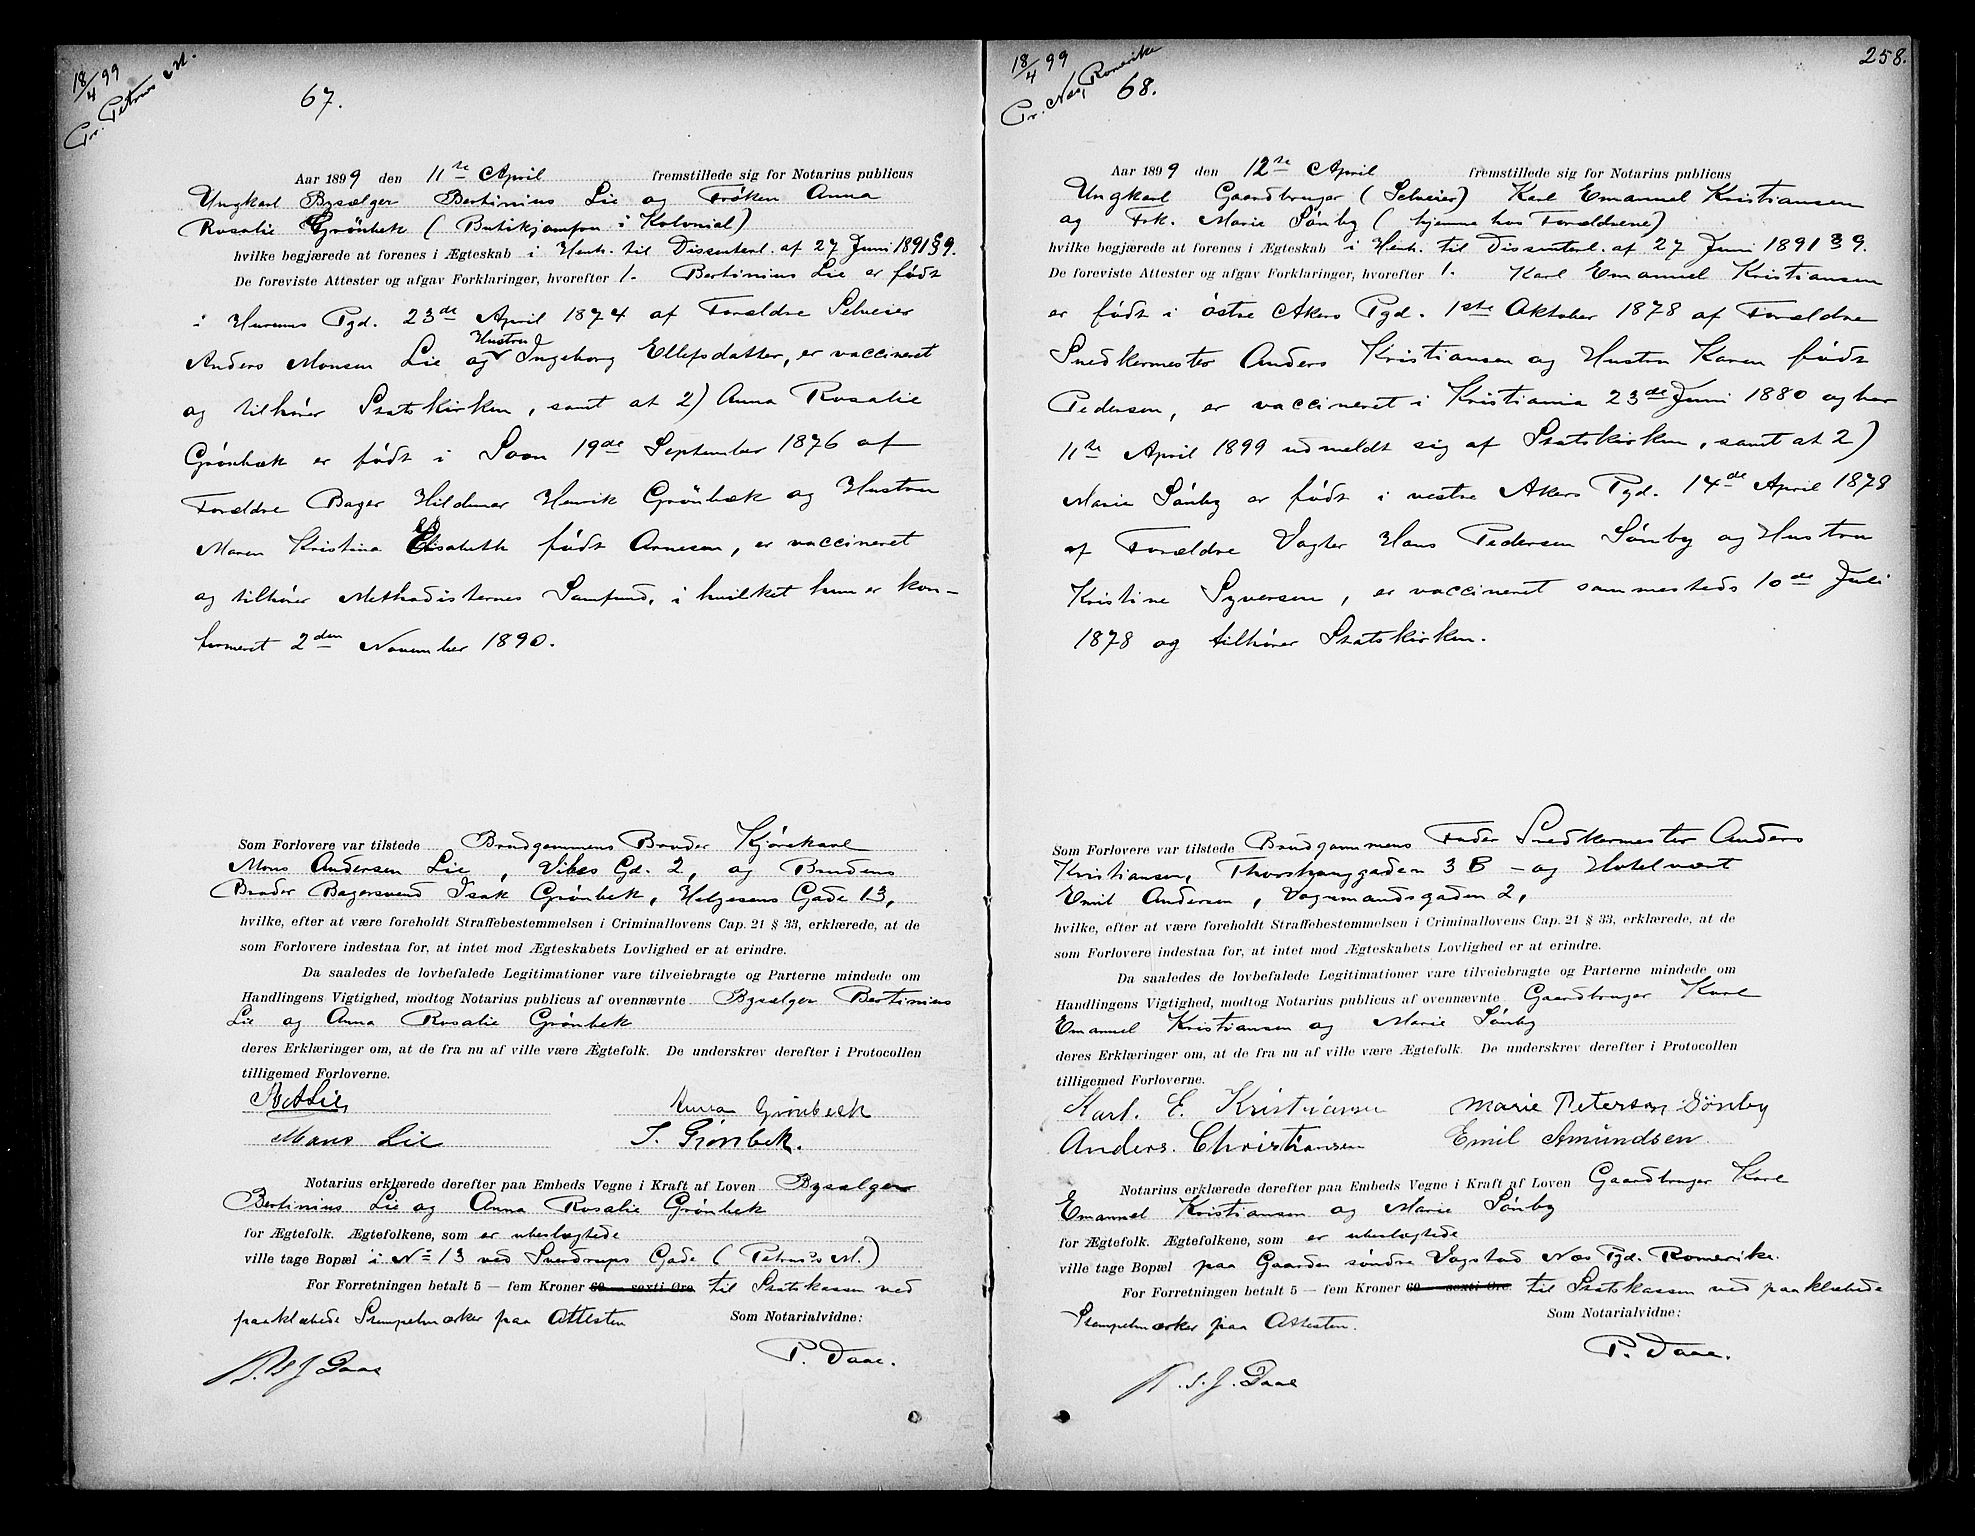 18/4 99
Pr. Petrus M.
67.
Aar 1899 den 11te April fremstillede sig for Notarius publicus
Ungkarl Bysælger Bertinius Lie og Frøken Anna
Rosalie Grønbek (Butikjomfru i Kolonial)
hvilke begjærede at forenes i Ægteskab i Henh. til Dissenterl. af 27 Juni 1891 § 9.
De foreviste Attester og afgav Forklaringer, hvorefter 1. Bertinius Lie er født
i Hurums Pgd. 23de April 1874 af Forældre Selveier
Hustru
Anders Monsen Lie og Ingeborg Ellefsdatter, er vaccineret
og tilhører Statskirken, samt at 2) Anna Rosalie
Grønbæk er født i Soon 19de September 1876 af
Forældre Bager Hildemar Henrik Grønbæk og Hustru
Maren Kristina Elisabeth født Arnesen, er vaccineret
og tilhører Methodisternes Samfund, i hvilket hun er kon-
firmeret 2den November 1890.
Som Forlovere var tilstede Brudgommens Broder Kjørekarl
Mons Andersen Lie, Vibes Gd. 2, og Brudens
Broder Bagersvend Isak Grønbek, Helgesens Gade 13,
hvilke, efter at være foreholdt Straffebestemmelsen i Criminallovens Cap. 21 § 33, erklærede, at de
som Forlovere indestaa for, at intet mod Ægteskabets Lovlighed er at erindre.
Da saaledes de lovbefalede Legitimationer vare tilveiebragte og Parterne mindede om
Handlingens Vigtighed, modtog Notarius publicus af ovennævnte Bysælger Bertinius
Lie og Anna Rosalie Grønbek
deres Erklæringer om, at de fra nu af ville være Ægtefolk. De underskrev derefter i Protocollen
tilligemed Forloverne.
Lie Anna Grönbeck
Mons Lie I. Grønbek.
Notarius erklærede derefter paa Embeds Vegne i Kraft af Loven Bysælger
Bertinius Lie og Anna Rosalie Grønbek
for Ægtefolk. Ægtefolkene, som er ubeslægtede
ville tage Bopæl i No 13 ved Sverdrups Gade (Petrus's M.)
For Forretningen betalt 5 — fem Kroner 60 — sexti Øre til Statskassen ved
paaklæbede Stempelmærker paa Attesten Som Notarialvidne:
Daae P. Daae.

18/4 99
Pr. Næs, Romerike
258.
68.
Aar 1899 den 12te April fremstillede sig for Notarius publicus
Ungkarl Gaardbruger (Selveier) Karl Emanuel Kristiansen
og Frk. Marie Sønby (hjemme hos Forældrene)
hvilke begjærede at forenes i Ægteskab i Henh. til Dissenterl. af 27 Juni 1891 § 9.
De foreviste Attester og afgav Forklaringer, hvorefter 1. Karl Emanuel Kristiansen
er født i østre Akers Pgd. 1ste Oktober 1878 af Forældre
Snedkermester Anders Kristiansen og Hustru Karen født
Pedersen, er vaccineret i Kristiania 23de Juni 1880 og har
11te April 1899 udmeldt sig af Statskirken, samt at 2)
Marie Sønby er født i vestre Akers Pgd. 14de April 1878
af Forældre Vogter Hans Pedersen Sønby og Hustru
Kristine Syversen, er vaccineret sammesteds 10de Juli
1878 og tilhører Statskirken.
Som Forlovere var tilstede Brudgommens Fader Snedkermester Anders
Kristiansen, Thorshauggaden 3 B – og Hotelvært
Emil Andersen, Vognmandsgaden 2,
hvilke, efter at være foreholdt Straffebestemmelsen i Criminallovens Cap. 21 § 33, erklærede, at de
som Forlovere indestaa for, at intet mod Ægteskabets Lovlighed er at erindre.
Da saaledes de lovbefalede Legitimationer vare tilveiebragte og Parterne mindede om
Handlingens Vigtighed, modtog Notarius publicus af ovennævnte Gaardbruger Karl
Emanuel Kristiansen og Marie Sønby
deres Erklæringer om, at de fra nu af ville være Ægtefolk. De underskrev derefter i Protocollen
tilligemed Forloverne.
Karl. E. Kristiansen Marie Peterson Sønby
Anders. Christiansen Emil Amundsen
Notarius erklærede derefter paa Embeds Vegne i Kraft af Loven Gaardbruger Karl
Emanuel Kristiansen og Marie Sønby
for Ægtefolk. Ægtefolkene, som er ubeslægtede
ville tage Bopæl paa Gaarden søndre Vogstad Næs Pgd. Romerike.
For Forretningen betalt 5 — fem Kroner 60 — sexti Øre til Statskassen ved paaklæbede
Stempelmærker paa Attesten. Som Notarialvidne:
Daae P. Daae.